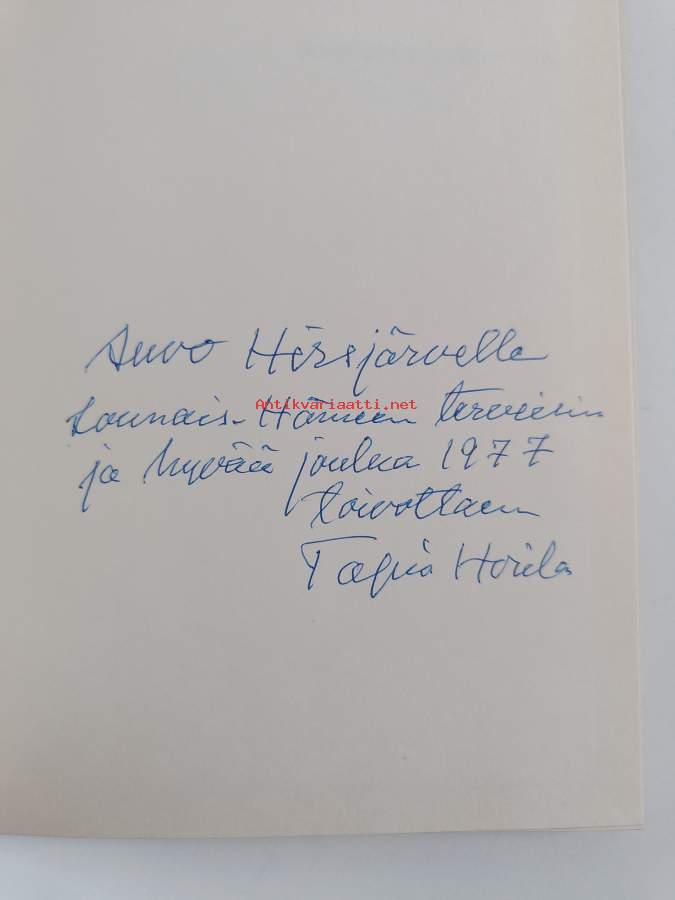 Auvo Hirsjärvelle
Antikvariaatti.net
Lounais-Hämeen terveisin
ja hyvää joulua 1977
toivottaen
Tapio Horila